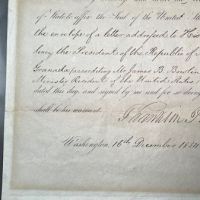 of State to affix the Seal of the United States
the envelope of a letter addressed to His
lency the President of the Republic of
Granada; accrediting Mr. James B. Bowlin
Minister Resident of the United States
dated this day and signed by me and for so doing
shall be his warrant.
Franklin
Washington, 16th December 1854